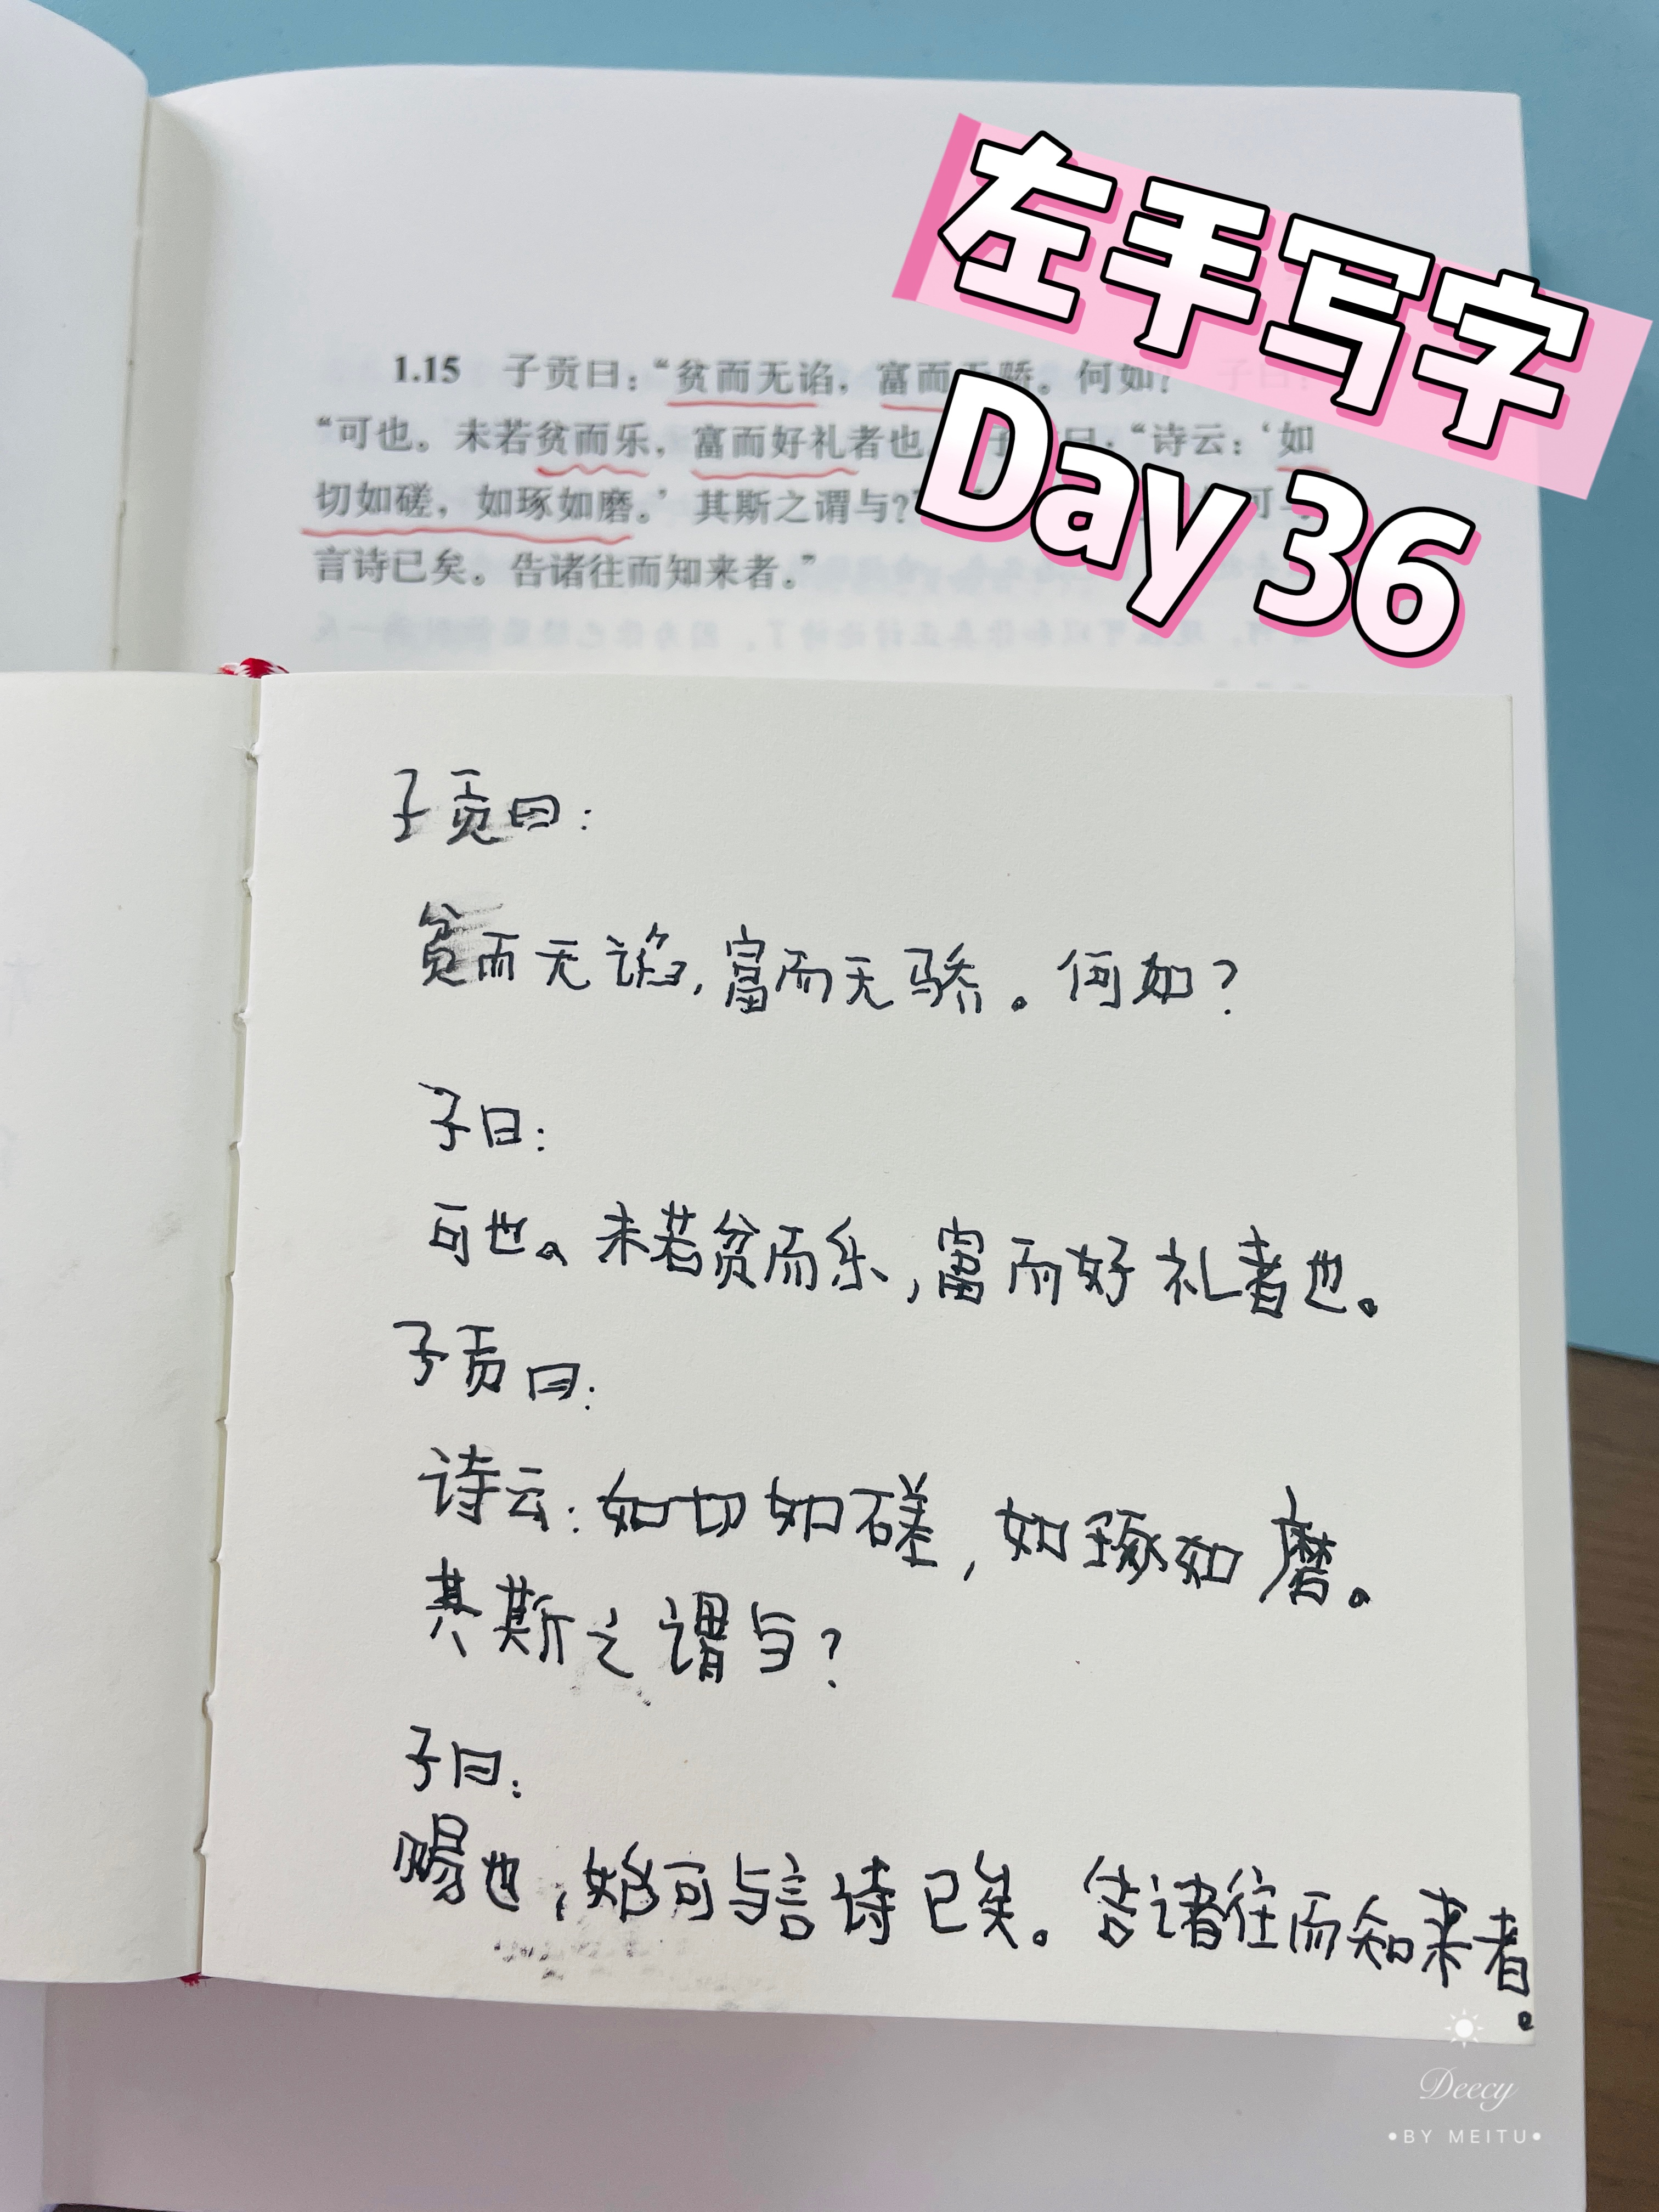 左手写字
Day 36
1.15 子贡曰：“贫而无谄，富而无骄。何如？ 子曰：
“可也。未若贫而乐，富而好礼者也 子 曰：“诗云：‘如
切如磋，如琢如磨。’其斯之谓与？ 可与
言诗已矣。告诸往而知来者。”
子贡曰：
贫而无谄，富而无骄。何如？
子曰：
可也。未若贫而乐，富而好礼者也。
子贡曰：
诗云：如切如磋，如琢如磨。
其斯之谓与？
子曰：
赐也，始可与言诗已矣。告诸往而知来者。
Deecy
•BY MEITU•